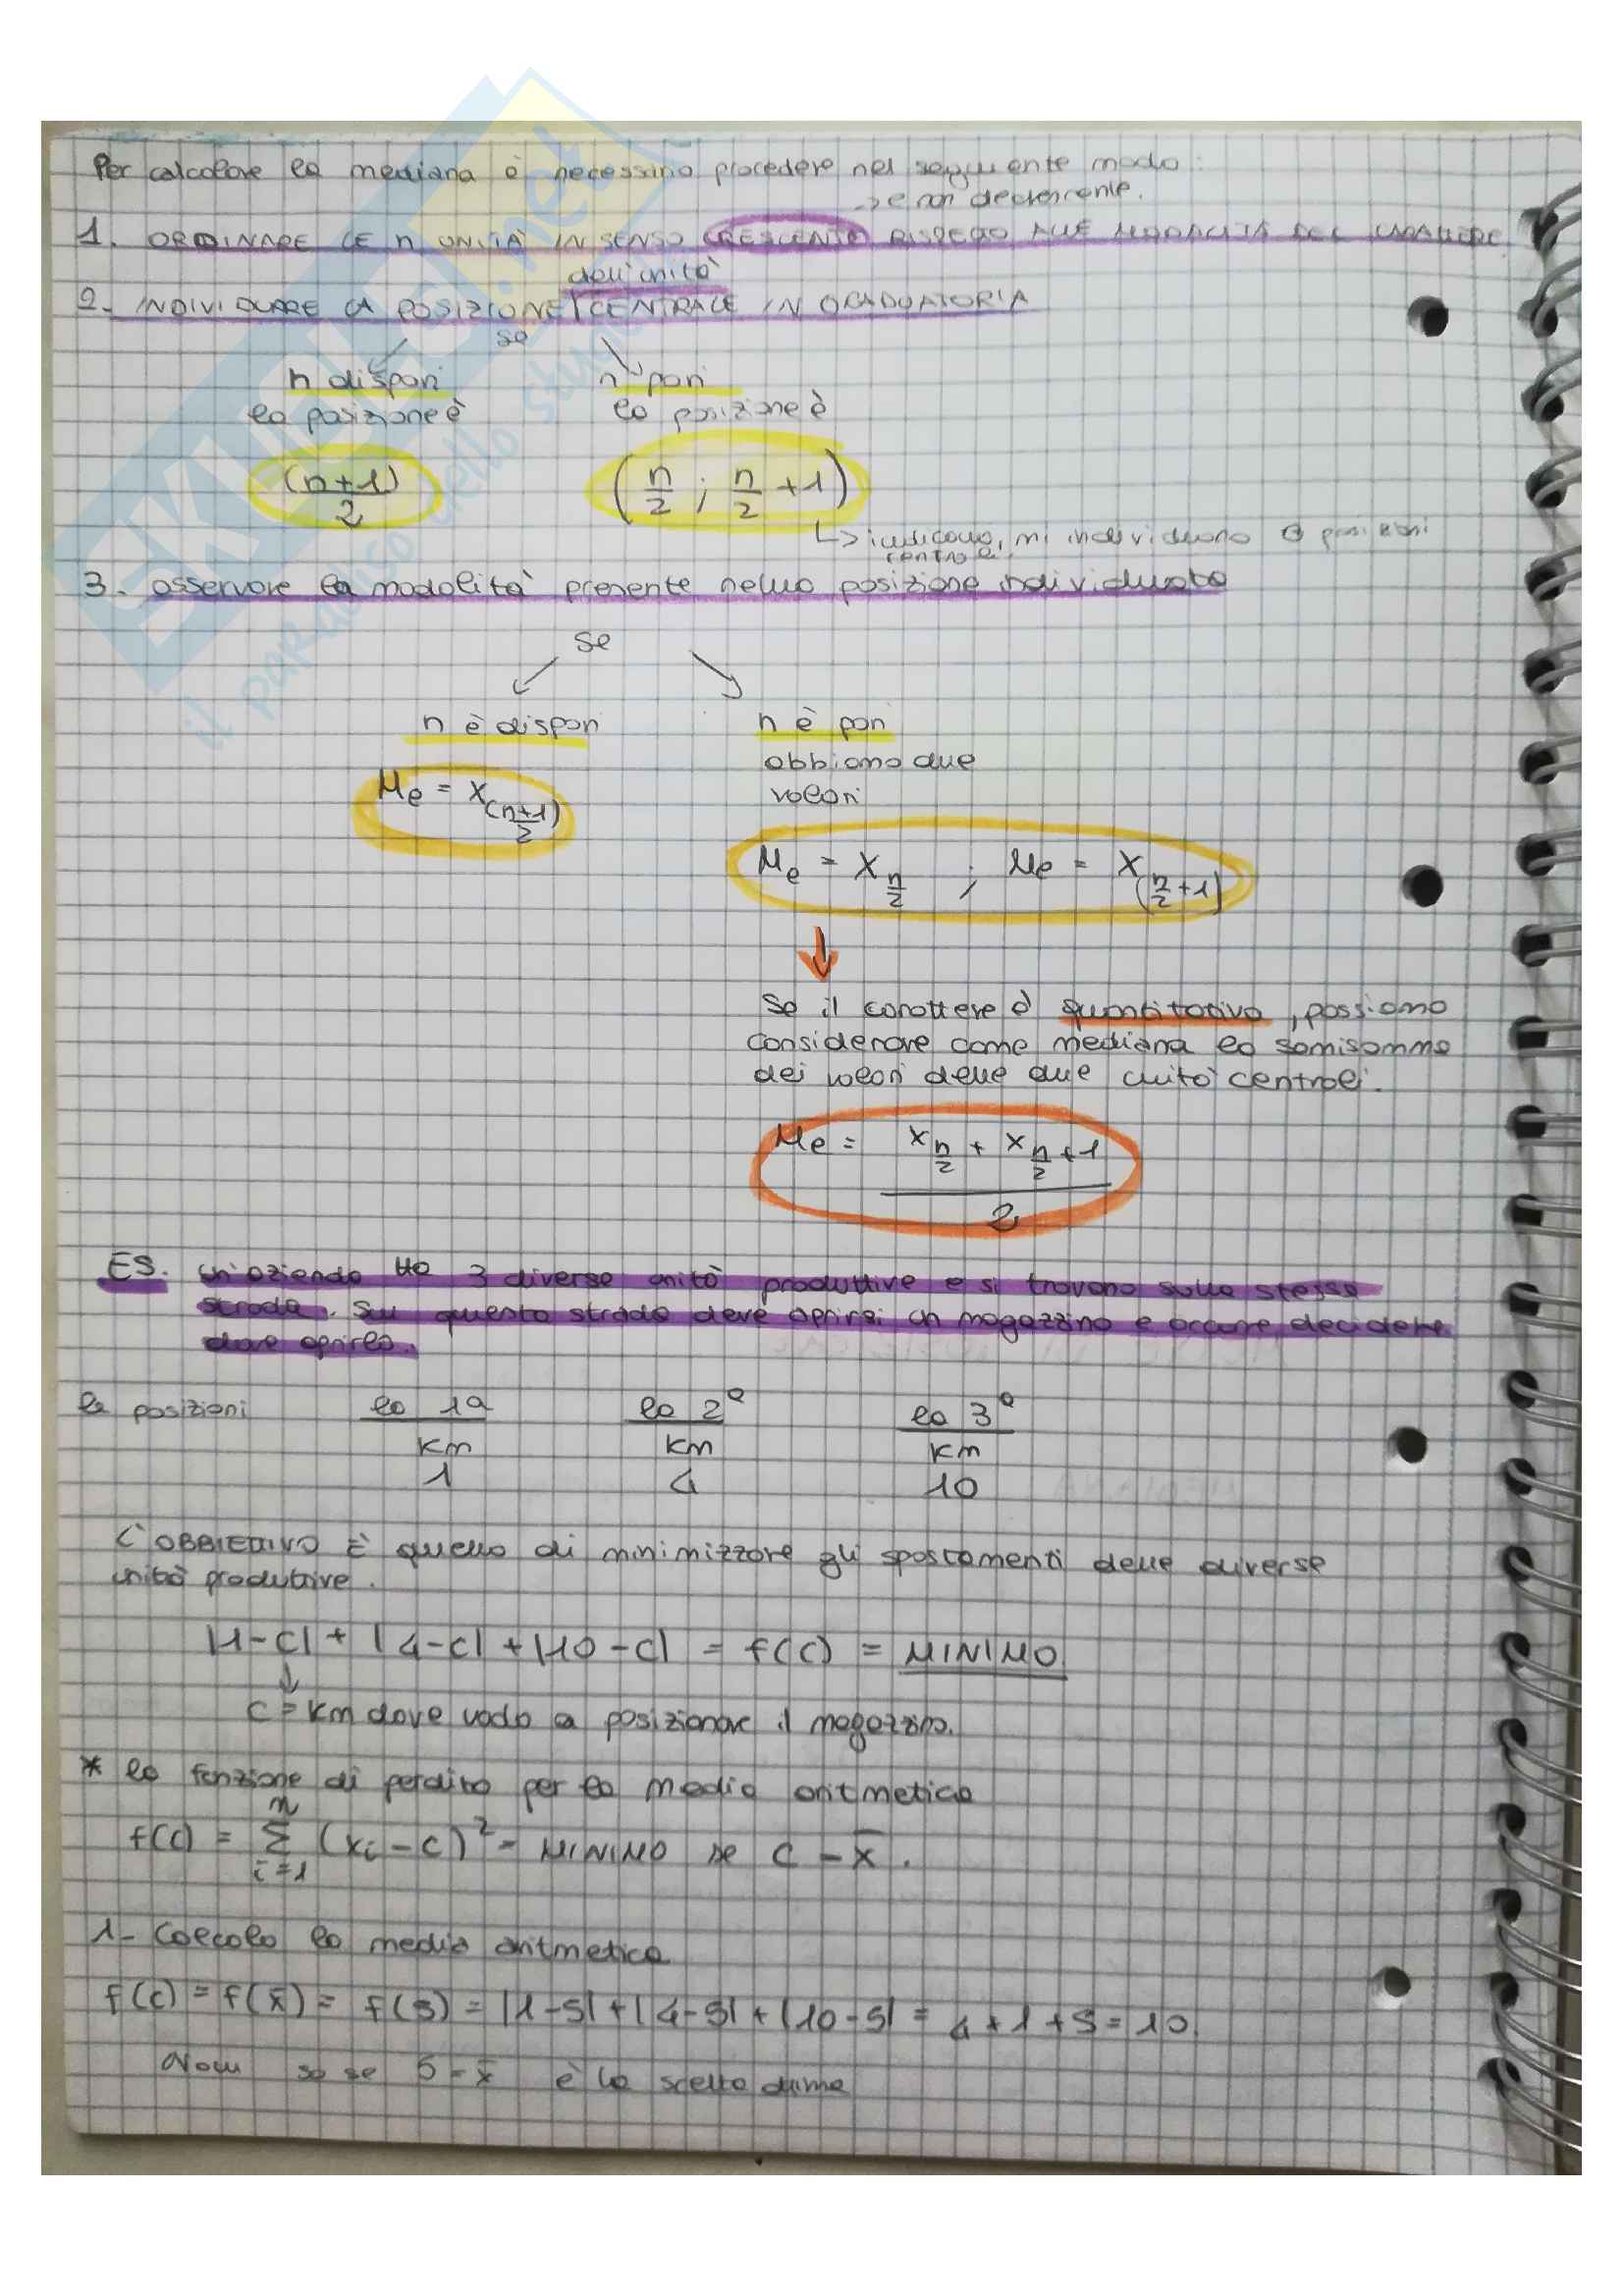 Per calcolare la mediana è necessario procedere nel seguente modo:
→ e non decrescente.
1. ORDINARE LE n UNITÀ IN SENSO CRESCENTE RISPETTO ALLE MODALITÀ DEL CARATTERE
dell'unità
2- INDIVIDUARE LA POSIZIONE CENTRALE IN GRADUATORIA
se
n dispari n pari
la posizione è la posizione è
(n+1)/2 (n/2 ; n/2 +1)
↳ indicano, mi individuano posizioni
centrali
3. osservare la modalità presente nella posizione individuata
se
n è dispari n è pari
abbiamo due
valori
Me = x(n+1)/2
Me = x n/2 ; Me = x (n/2 +1)
Se il carattere è quantitativo, possiamo
considerare come mediana la semisomma
dei valori delle due unità centrali.
Me = (x n/2 + x n/2 +1)/2
ES. un'azienda Ha 3 diverse unità produttive e si trovano sulla stessa
strada. Su questa strada deve aprirsi un magazzino e occorre decidere
dove aprirlo.
le posizioni la 1a la 2a la 3a
Km Km Km
1 4 10
L'OBBIETTIVO È quello di minimizzare gli spostamenti delle diverse
unità produttive.
|1-c| + |4-c| + |10-c| = f(c) = MINIMO
c = km dove vado a posizionare il magazzino.
* la funzione di perdita per la media aritmetica
f(c) = Σ n i=1 (xi - c)² = MINIMO se c = x̄.
1- Calcolo la media aritmetica
f(c) = f(x̄) = f(5) = |1-5| + |4-5| + |10-5| = 4+1+5=10.
Non so se 5 = x̄ è la scelta